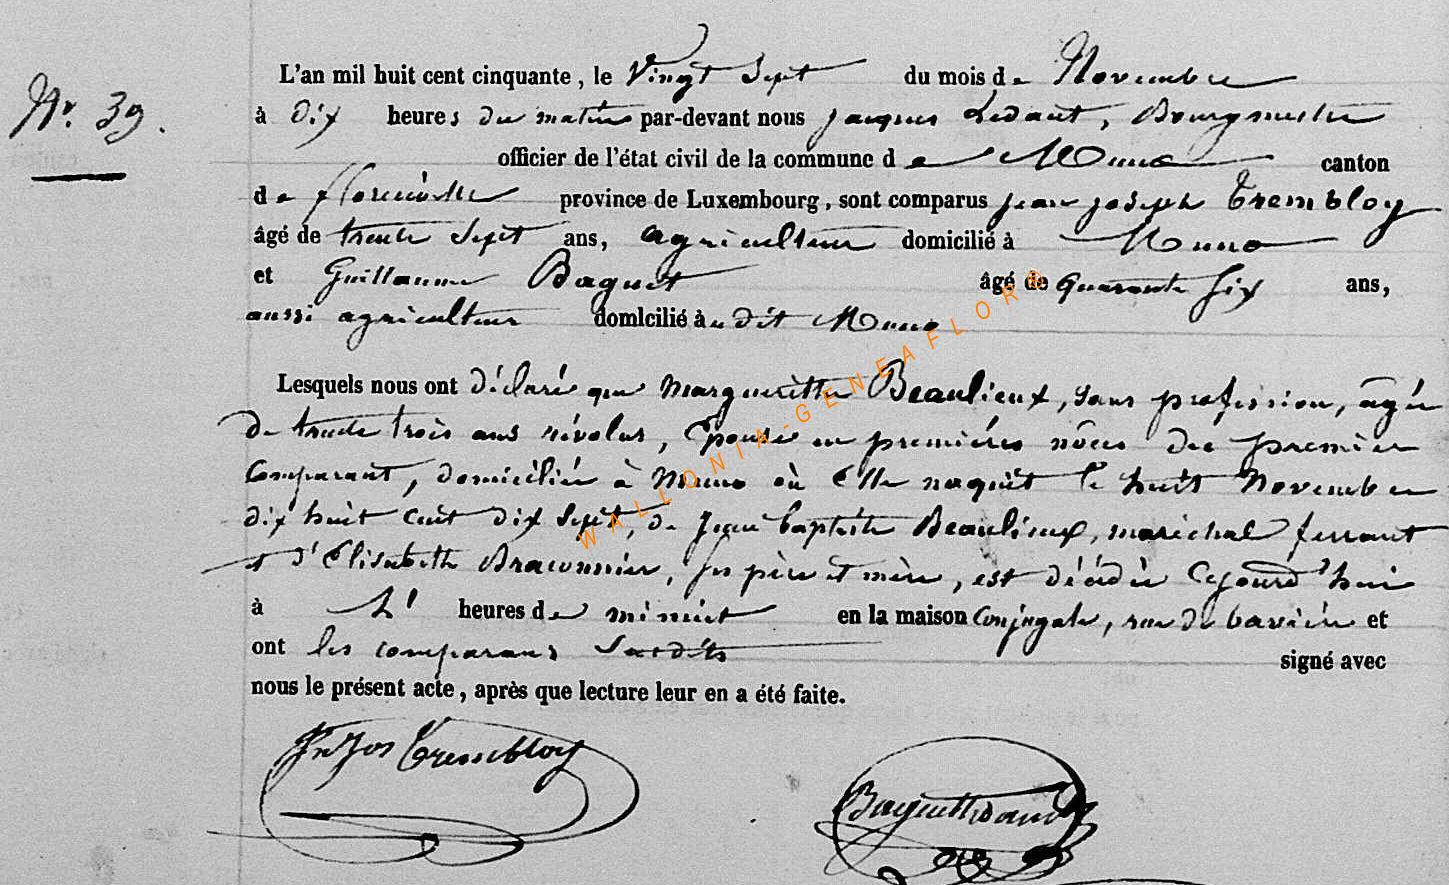 Nr. 39.
L'an mil huit cent cinquante, le Vingt Sept du mois de Novembre
à dix heures du matin par-devant nous Jacques Ledant, Bourgmestre
officier de l'état civil de la commune de Muno canton
de florenville province de Luxembourg, sont comparus Jean Joseph Trembloy
âgé de trente Sept ans, agriculteur domicilié à Muno
et Guillaume Baquet âgé de quarante Six ans,
aussi agriculteur domicilié à u dit Muno
Lesquels nous ont déclaré que Margueritte Beaulieux, Sans profession, agée
de trente trois ans révolus, Epouse en premières nôces du premier
Comparant, domiciliée à Muno où Elle naquit le huit Novembre
dix huit cent dix Sept, de Jean baptiste Beaulieux, maréchal ferrant
et d'Elisabeth Braconnier, Ses père et mère, est décédée Cejourd'hui
à heures de minuit en la maison Conjugale, rue de bavière et
ont les comparans Susdits signé avec
nous le présent acte, après que lecture leur en a été faite.
Jn Jos Trembloy
WALLONIA-GENEAFLOR®